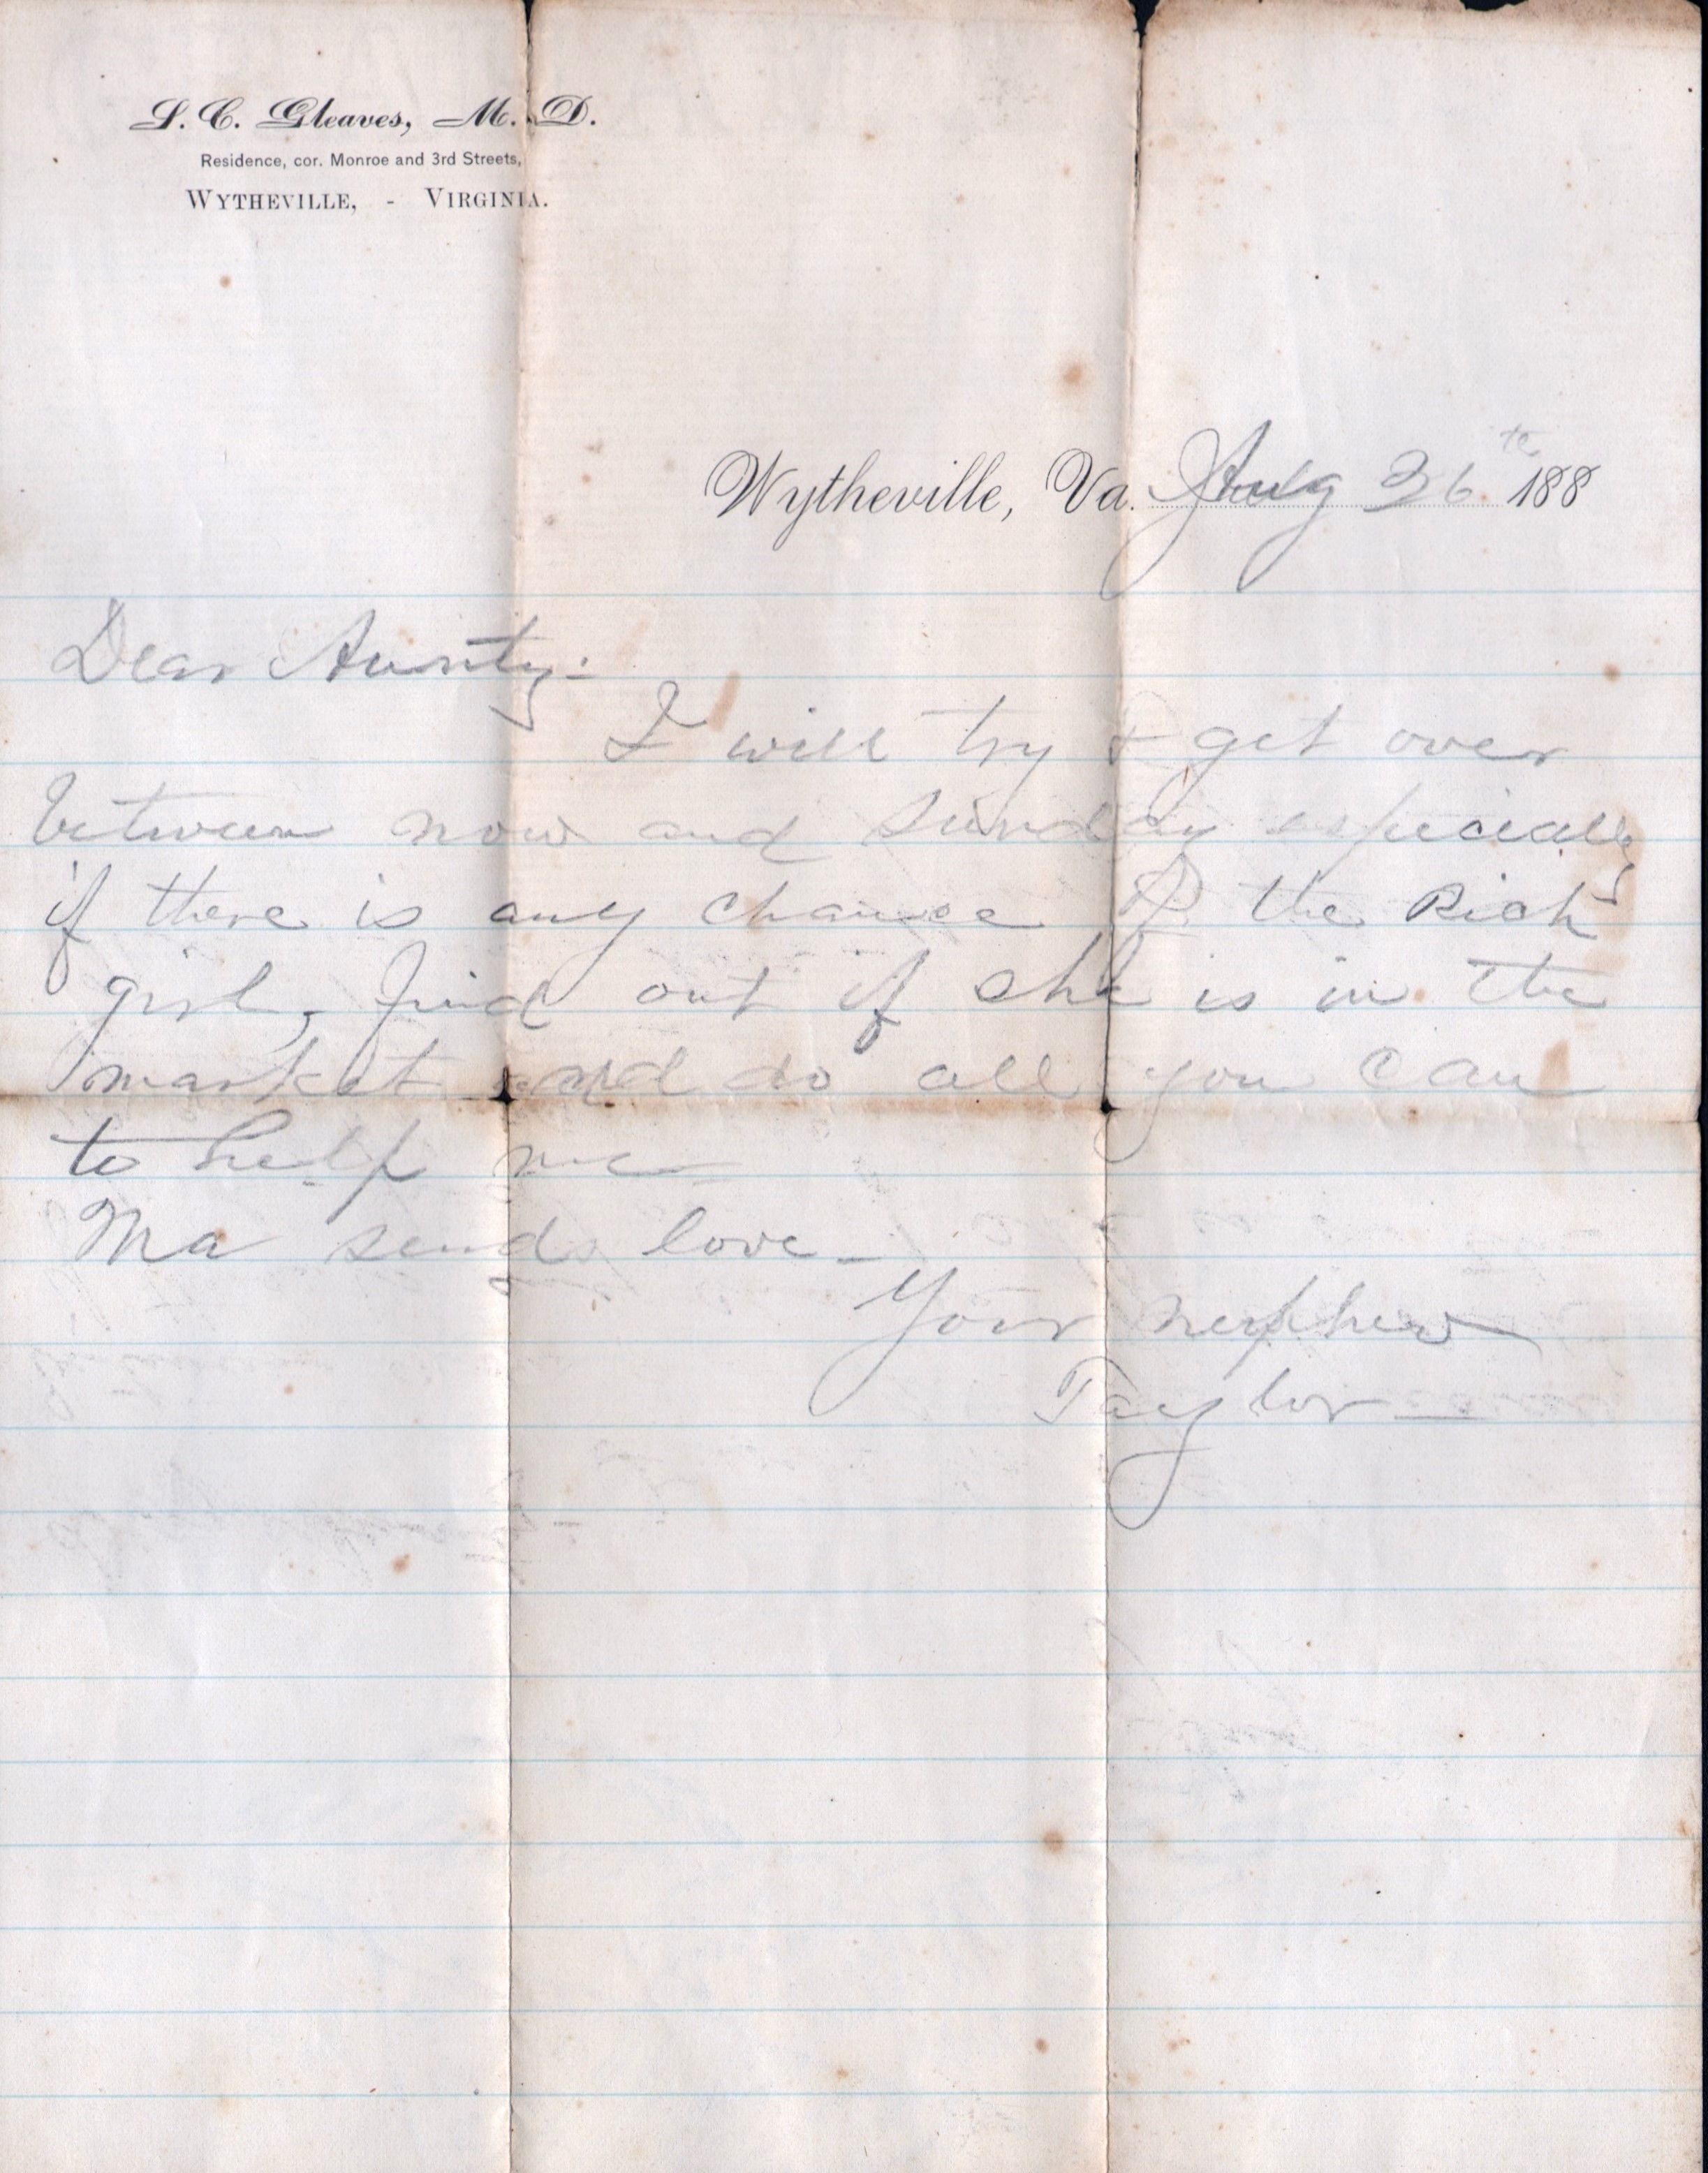 S. C. Gleaves, M. D.
Residence, cor. Monroe and 3rd Streets,
WYTHEVILLE, - VIRGINIA.
Wytheville, Va. Aug 26th 188
Dear Aunty:
I will try & get over
between now and Sunday especially
if there is any chance of the Rich
girl, find out if she is in the
market and do all you can
to help me
Ma sends love -
Your nephew
Taylor